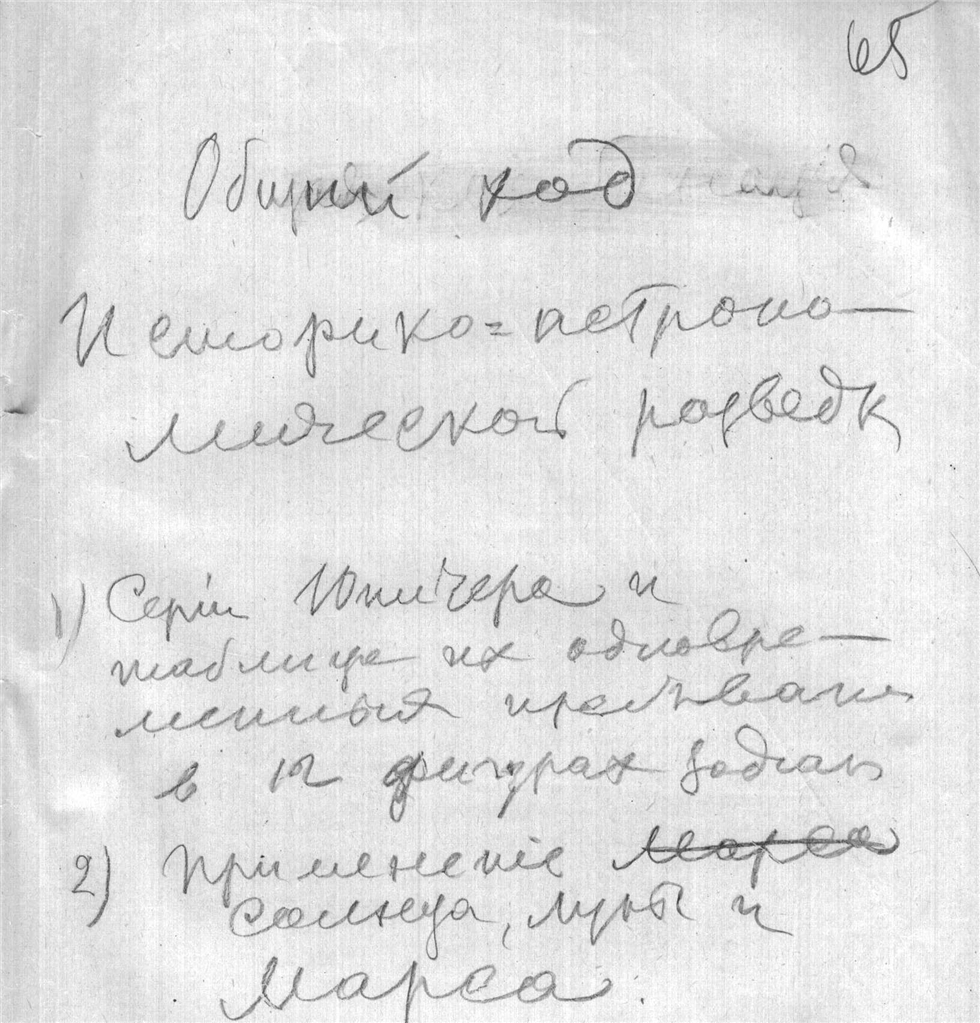 65
Общий ход
Историко=астроно—
мической разведк
1) Серіи Юпитера и
таблица их одновре—
менных пребыван
в 12 фигурах Зодіак
2) Применение Марса
Солнца, луны и
Марса.